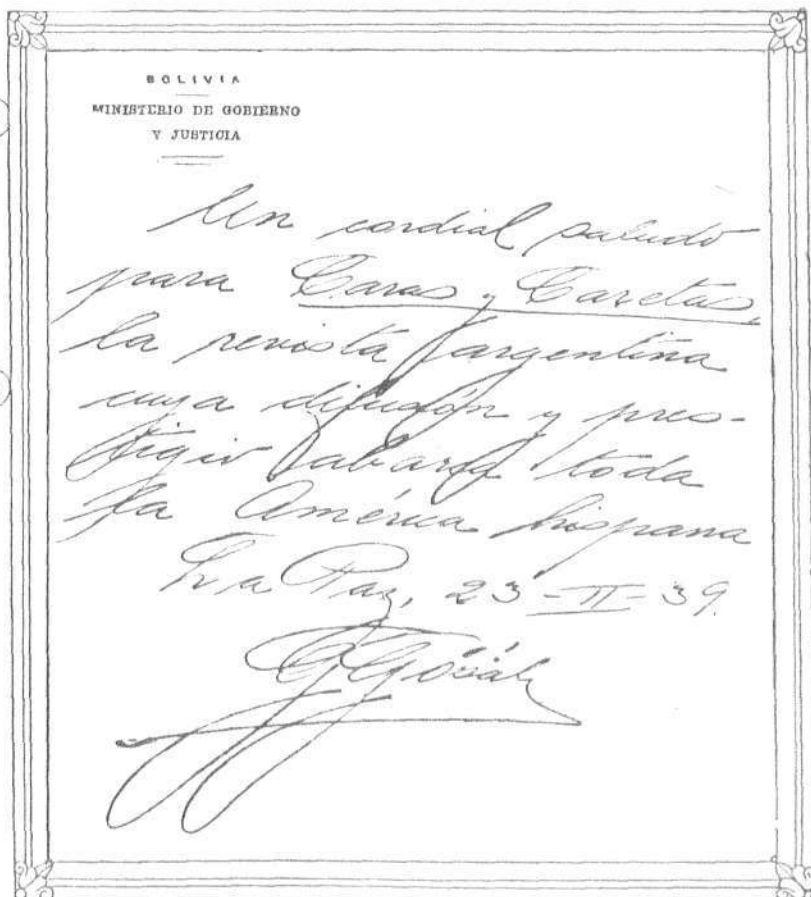 BOLIVIA
MINISTERIO DE GOBIERNO
Y JUSTICIA
Un cordial saludo
para Caras y Caretas,
la revista argentina
cuya difusión y pres-
tigio abarca toda
la América hispana
La Paz, 23-II-39.